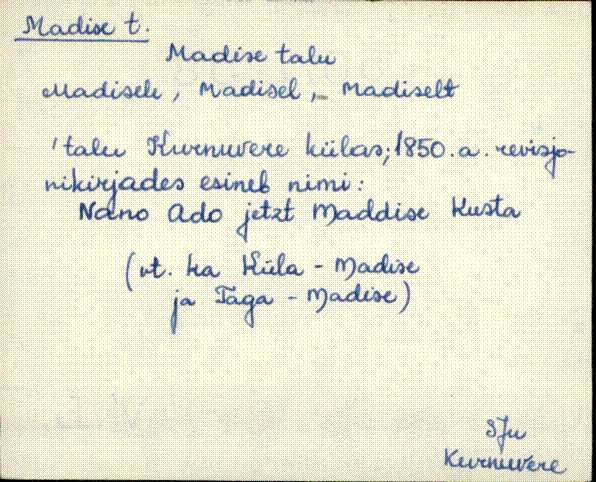 Madise t.
Madise talu
Madisele, Madisel, Madiselt
'talu Kurnuvere külas; 1850.a. revisjo-
nikirjades esineb nimi:
Nano Ado jetzt Maddise Kusta
(vt. ka Küla-Madise
ja Taga-Madise)
SJu
Kurnuvere